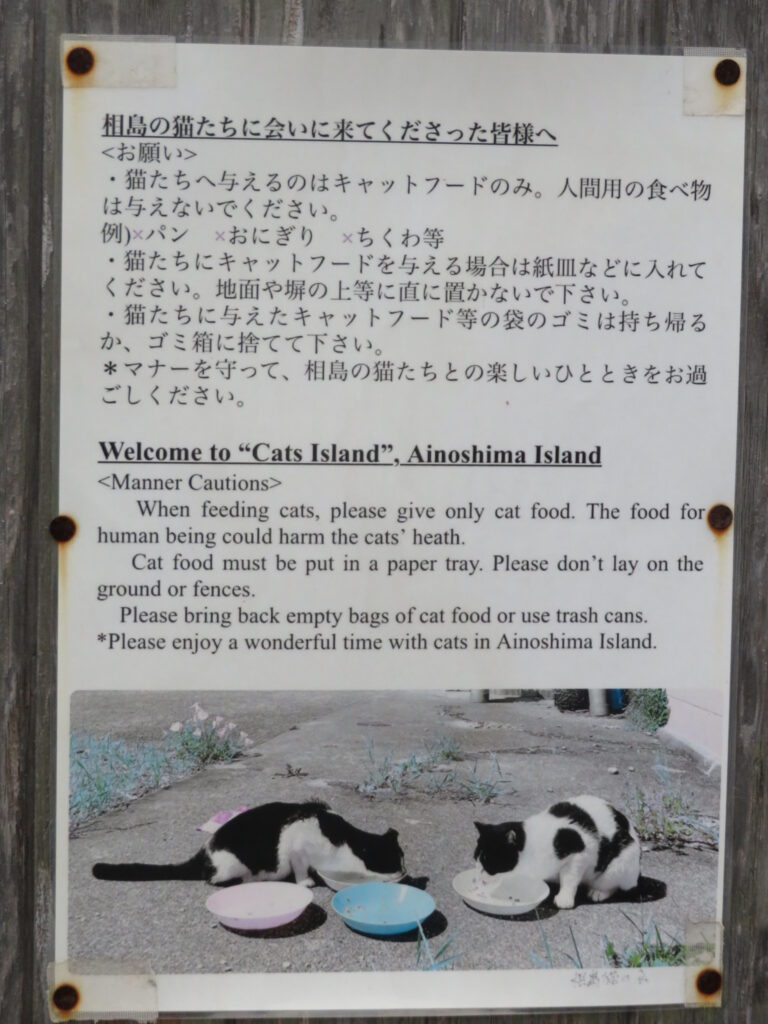 相島の猫たちに会いに来てくださった皆様へ
<お願い>
・猫たちへ与えるのはキャットフードのみ。人間用の食べ物
は与えないでください。
例)×パン　×おにぎり　×ちくわ等
・猫たちにキャットフードを与える場合は紙皿などに入れて
ください。地面や塀の上等に直に置かないで下さい。
・猫たちに与えたキャットフード等の袋のゴミは持ち帰る
か、ゴミ箱に捨てて下さい。
＊マナーを守って、相島の猫たちとの楽しいひとときをお過
ごしください。
Welcome to “Cats Island”, Ainoshima Island
<Manner Cautions>
When feeding cats, please give only cat food. The food for
human being could harm the cats’ heath.
Cat food must be put in a paper tray. Please don’t lay on the
ground or fences.
Please bring back empty bags of cat food or use trash cans.
*Please enjoy a wonderful time with cats in Ainoshima Island.